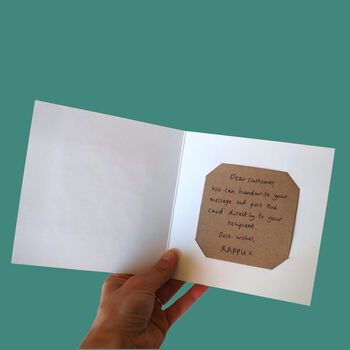 Dear Customer,
We can handwrite your
message and post the
card directly to your
recipient.
Best wishes,
RAPPU x